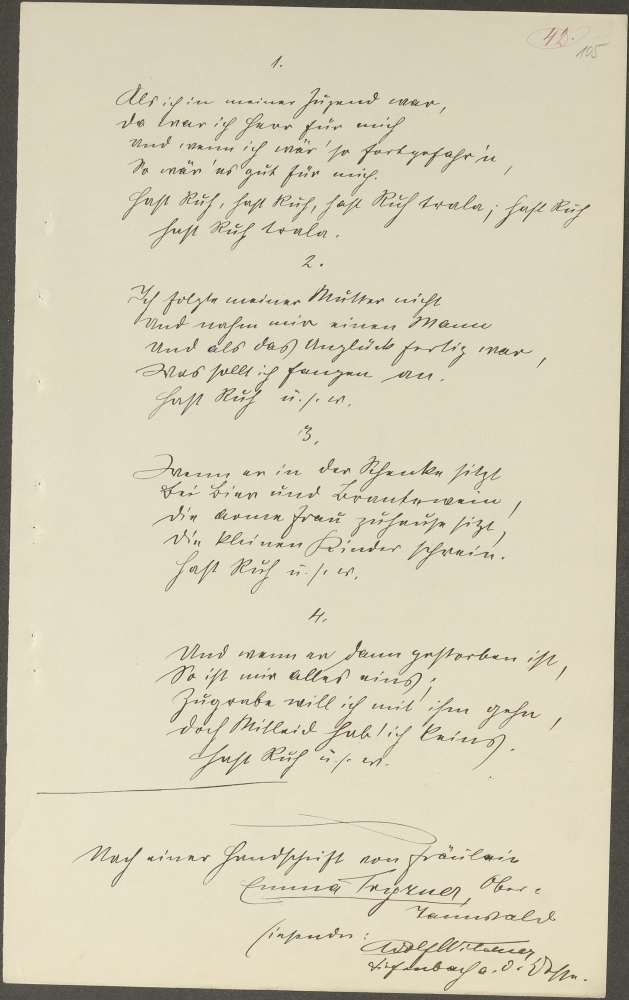 42.
105
1.
Als ich in meiner Jugend war,
Da war ich Herr für mich
Und wenn ich wär' so fortgefahr'n,
So wär' es gut für mich.
Hast Ruh, hast Ruh, hast Ruh trala; hast Ruh
hast Ruh trala.
2.
Ich folgte meiner Mutter nicht
Und nahm mir einen Mann
Und als das Unglück fertig war,
Was sollt ich fangen an.
Hast Ruh u. s. w.
3.
Wenn er in der Schenke sitzt
Bei Bier und Brantewein,
Die arme Frau zuhause sizt,
Die kleinen Kinder schrein.
Hast Ruh u. s. w.
4.
Und wenn er dann gestorben ist,
So ist mir alles eins;
Zugrabe will ich mit ihm gehn,
Doch Mitleid hab' ich keins.
Hast Ruh u. s. w.
Nach einer Handschrift von Fräulein
Emma Ober-
Tannwald
Einsender:
Adolf Wildner
Tiefenbach a. d. Desse.